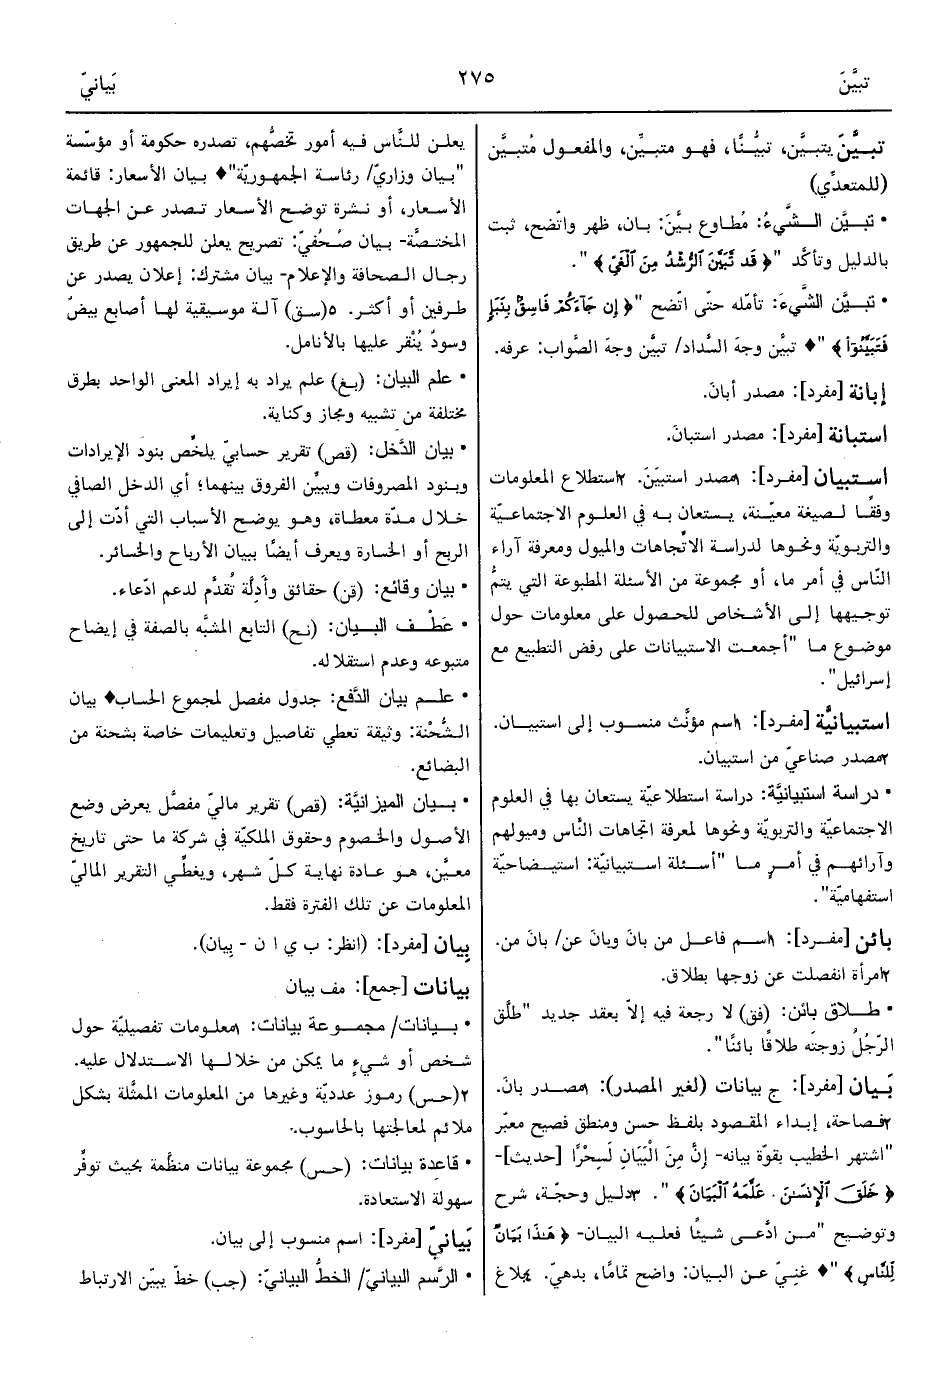 تبيَّنَ
٢٧٥
بَيانيّ
تبيَّنَ يتبيَّن، تبيُّنًا، فهو متبيِّن، والمفعول مُتبيَّن
(للمتعدِّي)
• تبيَّن الشَّيءُ: مُطاوع بيَّنَ: بان، ظهر واتّضح، ثبت
بالدليل وتأكَّد "﴿ قَد تَّبَيَّنَ ٱلرُّشْدُ مِنَ ٱلْغَيِّ ﴾ ".
• تبيَّن الشَّيءَ: تأمّله حتّى اتّضح "﴿ إِن جَآءَكُمْ فَاسِقٌۢ بِنَبَإٍ
فَتَبَيَّنُوٓا۟ ﴾ "♦ تبيَّن وجهَ السَّداد/ تبيَّن وجهَ الصَّواب: عرفه.
إبانة [مفرد]: مصدر أبانَ.
استبانة [مفرد]: مصدر استبانَ.
استبيان [مفرد]: ١مصدر استبيَنَ. ٢استطلاع المعلومات
وفقًا لصيغة معيّنة، يستعان به في العلوم الاجتماعيّة
والتربويّة ونحوها لدراسة الاتِّجاهات والميول ومعرفة آراء
النّاس في أمر ما، أو مجموعة من الأسئلة المطبوعة التي يتمُّ
توجيهها إلى الأشخاص للحصول على معلومات حول
موضوع ما "أجمعت الاستبيانات على رفض التطبيع مع
إسرائيل".
استبيانيَّة [مفرد]: ١اسم مؤنَّث منسوب إلى استبيان.
٢مصدر صناعيّ من استبيان.
• دراسة استبيانيَّة: دراسة استطلاعيّة يستعان بها في العلوم
الاجتماعيّة والتربويّة ونحوها لمعرفة اتجاهات النَّاس وميولهم
وآرائهم في أمرٍ ما "أسئلة استبيانيّة: استيضاحيّة
استفهاميّة".
بائن [مفرد]: ١اسم فاعل من بانَ وبانَ عن/ بانَ من.
٢امرأة انفصلت عن زوجها بطلاق.
• طلاق بائن: (فق) لا رجعة فيه إلاّ بعقد جديد "طلَّق
الرّجُلُ زوجتَه طلاقًا بائنًا".
بَيان [مفرد]: ج بيانات (لغير المصدر): ١مصدر بانَ.
٢فصاحة، إبداء المقصود بلفظ حسن ومنطق فصيح معبّر
"اشتهر الخطيب بقوة بيانه- إنَّ مِنَ الْبَيَانِ لَسِحْرًا [حديث]-
﴿ خَلَقَ ٱلْإِنسَٰنَ. عَلَّمَهُ ٱلْبَيَانَ ﴾ ". ٣دليل وحجّة، شرح
وتوضيح "من ادَّعى شيئًا فعليه البيان- ﴿ هَٰذَا بَيَانٌ
لِّلنَّاسِ ﴾ "♦ غنيّ عن البيان: واضح تمامًا، بدهيّ. ٤بلاغ
يعلن للنَّاس فيه أمور تخصُّهم، تصدره حكومة أو مؤسّسة
"بيان وزاريّ/ رئاسة الجمهوريّة"♦ بيان الأسعار: قائمة
الأسعار، أو نشرة توضح الأسعار تصدر عن الجهات
المختصَّة- بيان صُحُفيّ: تصريح يعلن للجمهور عن طريق
رجال الصحافة والإعلام- بيان مشترك: إعلان يصدر عن
طرفين أو أكثر. ٥(سق) آلة موسيقية لها أصابع بيضٌ
وسودٌ يُنْقر عليها بالأنامل.
• علم البيان: (بغ) علم يراد به إيراد المعنى الواحد بطرق
مختلفة من تشبيه ومجاز وكناية.
• بيان الدَّخل: (قص) تقرير حسابيّ يلخِّص بنود الإيرادات
وبنود المصروفات ويبيِّن الفروق بينهما؛ أي الدخل الصافي
خلال مدّة معطاة، وهو يوضح الأسباب التي أدّت إلى
الربح أو الخسارة ويعرف أيضًا ببيان الأرباح والخسائر.
• بيان وقائع: (قن) حقائق وأدِلّة تُقدَّم لدعم ادّعاء.
• عَطْف البيان: (نح) التابع المشبَّه بالصفة في إيضاح
متبوعه وعدم استقلاله.
• علم بيان الدَّفع: جدول مفصل لمجموع الحساب♦ بيان
الشُّحْنة: وثيقة تعطي تفاصيل وتعليمات خاصة بشحنة من
البضائع.
• بيان الميزانيَّة: (قص) تقرير ماليّ مفصَّل يعرض وضع
الأصول والخصوم وحقوق الملكيّة في شركة ما حتى تاريخ
معيَّن، هو عادة نهاية كلّ شهر، ويغطِّي التقرير الماليّ
المعلومات عن تلك الفترة فقط.
بِيان [مفرد]: (انظر: ب ي ا ن - بِيان).
بيانات [جمع]: مف بيان
• بيانات/ مجموعة بيانات: ١معلومات تفصيليّة حول
شخص أو شيءٍ ما يمكن من خلالها الاستدلال عليه.
٢(حس) رموز عدديّة وغيرها من المعلومات الممثَّلة بشكل
ملائم لمعالجتها بالحاسوب.
• قاعدة بيانات: (حس) مجموعة بيانات منظَّمة بحيث توفِّر
سهولة الاستعادة.
بَيانيّ [مفرد]: اسم منسوب إلى بيان.
• الرَّسم البيانيّ/ الخطُّ البيانيّ: (جب) خطّ يبيّن الارتباط